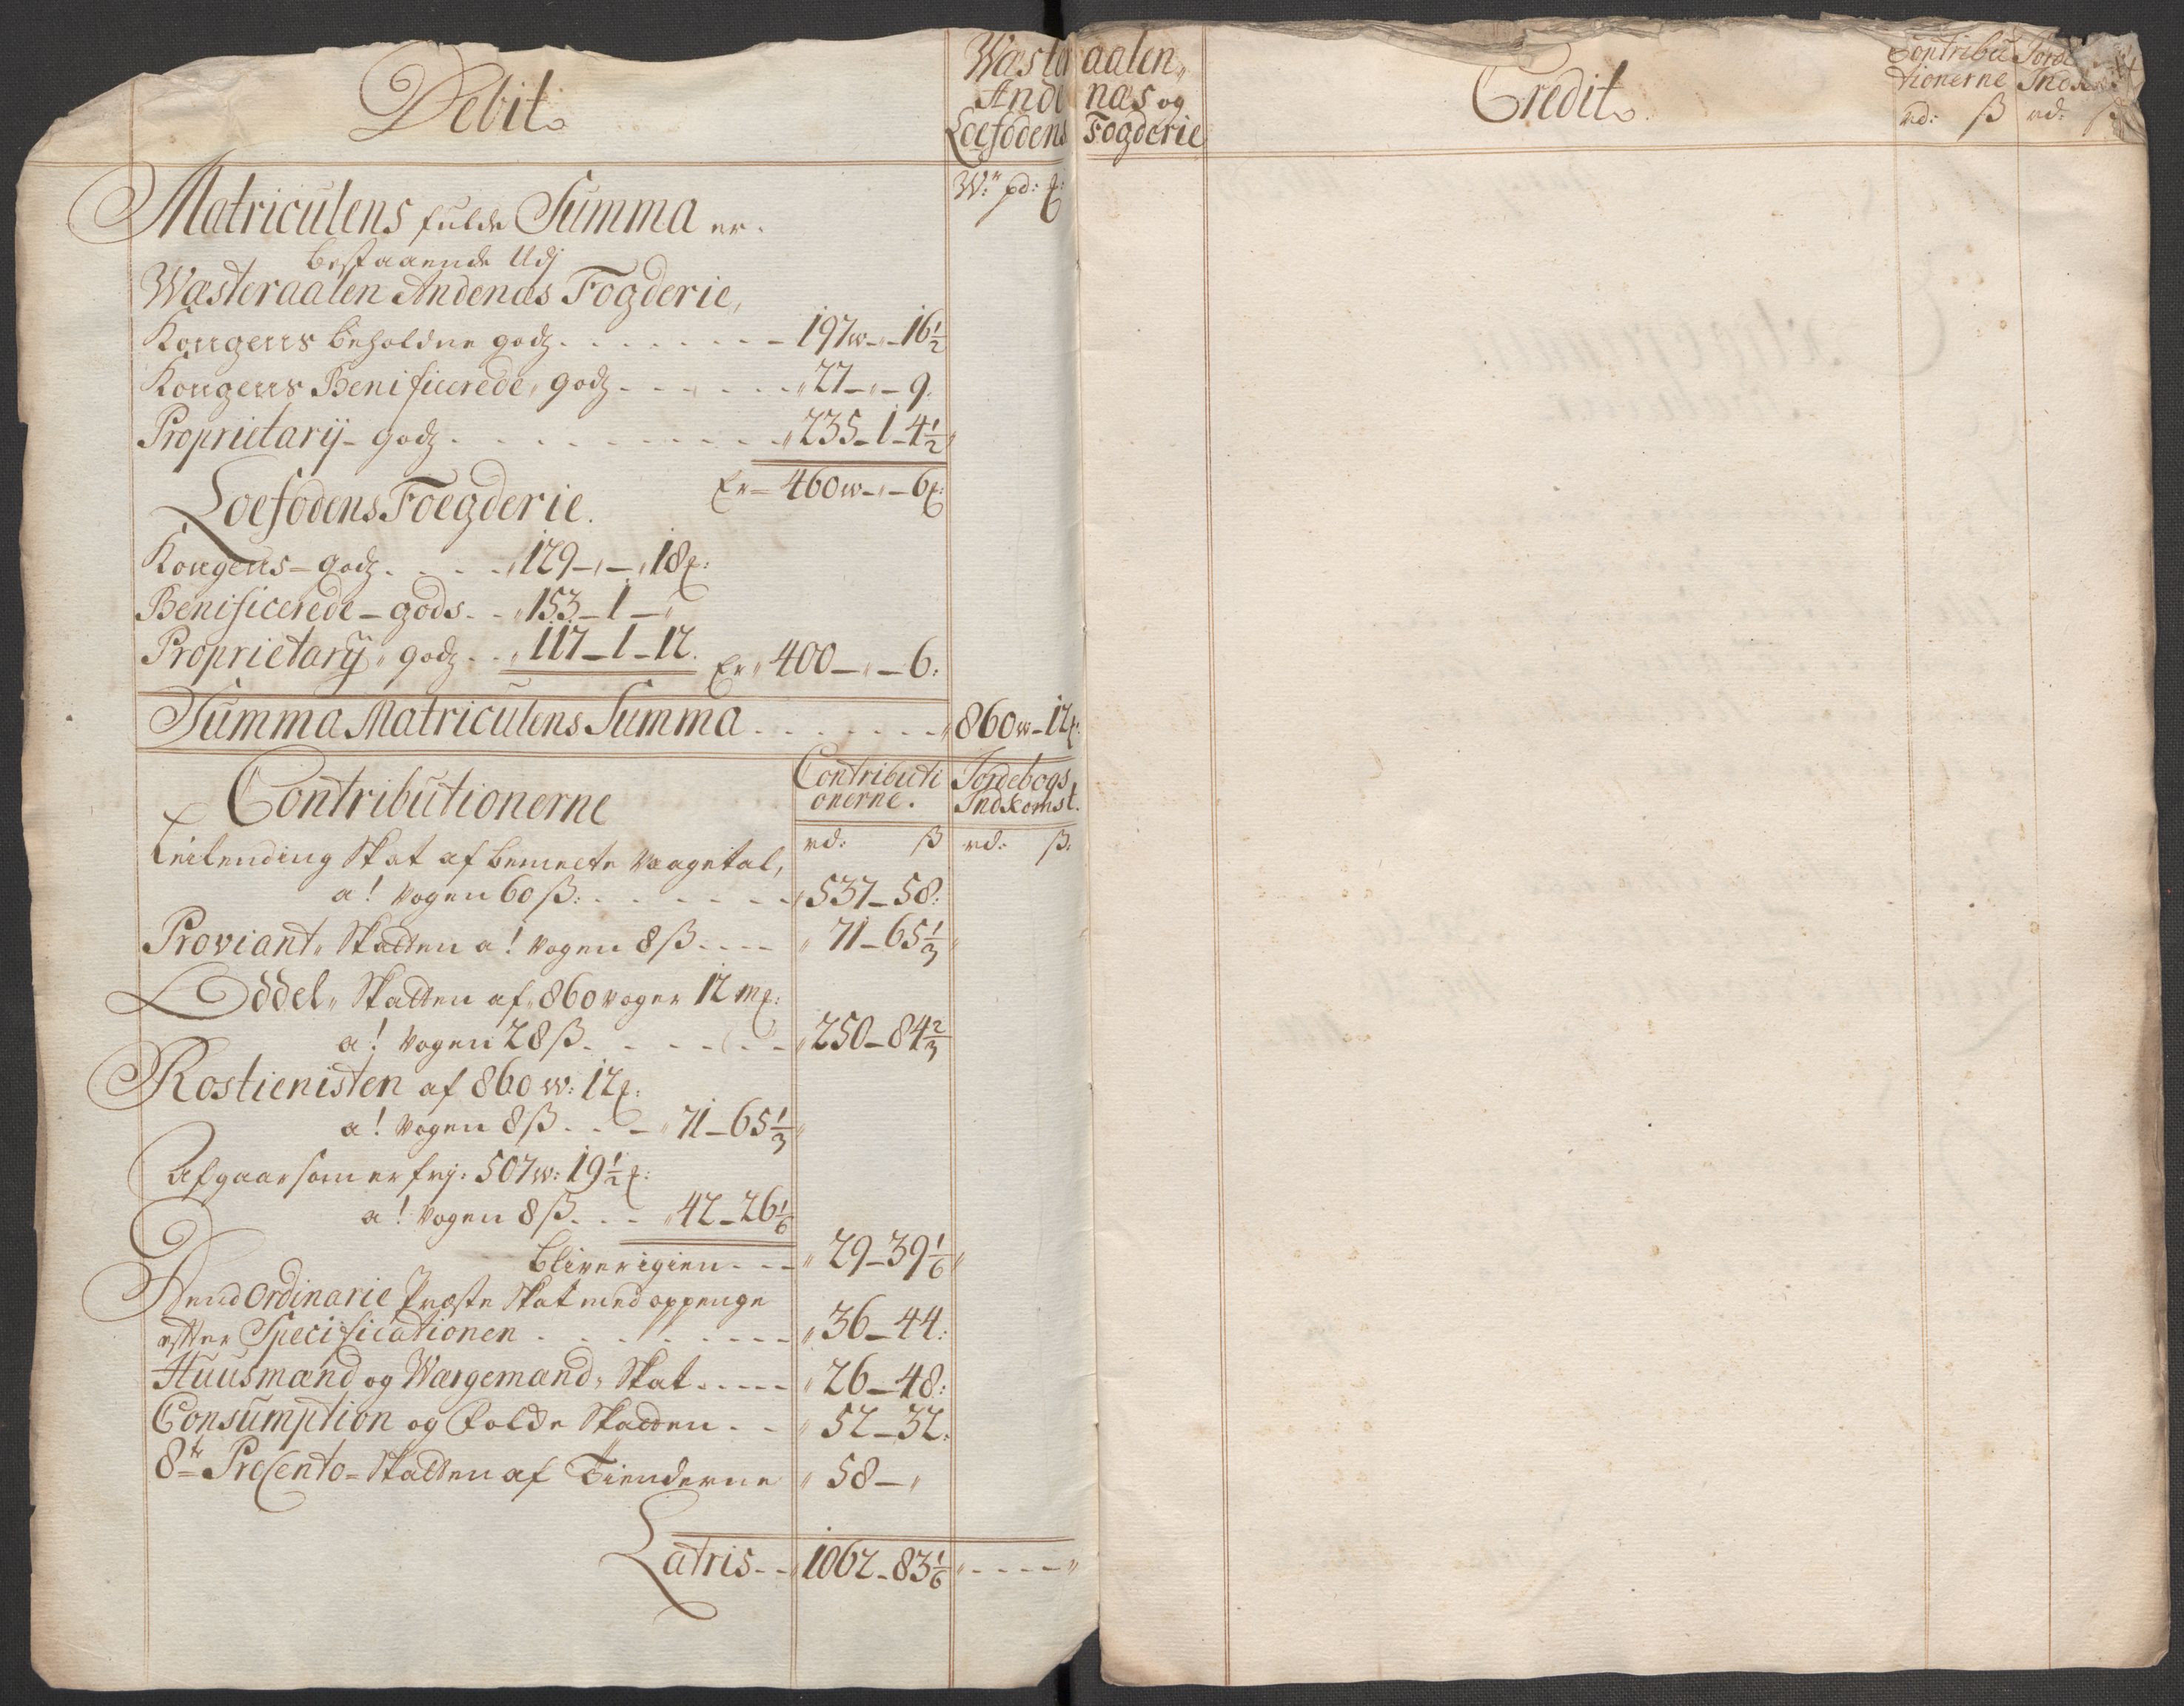 Debit
Wæsteraalen
Andenæs og
Loefodens Fogderie
W: pd: ℔:
Matriculens fulde Summa er.
bestaaende Udj
Wæsteraalen Andenæs Fogderie,
Kongens beholdne godz. - - - 197w - „ - 16½
Kongens Benificerede, godz - - - „27 - „ - 9.
Proprietarij - godz - - - „235 - 1 - 4½
Er - 460w - „ - 6℔:
Loefodens Foegderie.
Kongens - godz. - - - „129 - „ - „18℔:
Benificerede - gods. - „153 - 1 - „
Proprietarij „ godz. - „117 - 1 - 12.
Er „ 400 - „ - 6:
Summa Matriculens Summa - - - „860w - 12℔:
Contributionerne
Contributi
onerne.
Jordebogs
Indkomst.
rd: ß rd: ß:
Leilending Skat af bemelte Vaagetal,
a! Vogen 60 ß: - - - „537 - 58:
Proviant „ Skatten a! Vogen 8 ß - - - „ 71 - 65⅓ „
Oddel „ Skatten af „ 860 voger 12 m℔:
a! Vogen 28 ß. - - - „250 - 84⅔
Rostienisten af 860 w: 12℔:
a! Vogen 8 ß. - - „ 71 - 65⅓ „
Afgaar som er frj: 507w: 19½℔:
a! Vogen 8 ß. - - „42 - 26⅙
bliver igien - - - „ 29 - 39⅙ „
Dend Ordinarie Præste Skat med oppenge
efter Specificationen - - - „ 36 - 44:
Huusmænd og Wargemænd „ Skat - - - „ 26 - 48:
Consumption og Folde Skatten - - „ 52 - 32:
8te Procento = Skatten af Tienderne „ 58 - „
Latris - - „ 1062 - 83⅙ „ - - - - „
Credit
Contribu
tionerne
rd: ß rd: ß